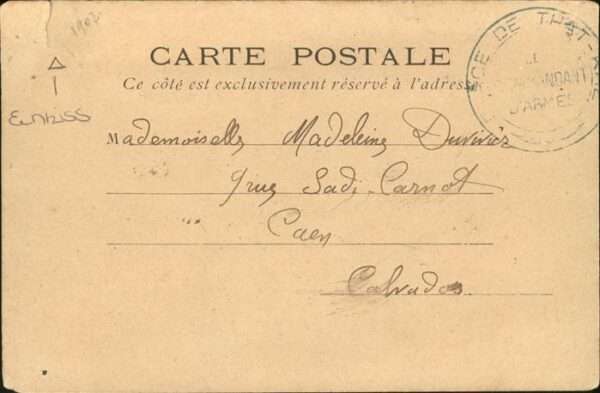 1907
CARTE POSTALE
Ce côté est exclusivement réservé à l'adresse
PLACE DE THAT-KHE
LE
COMMANDANT
D'ARMES
Mademoiselle Madeleine Duvivier
9 rue Sadi-Carnot
Caen
Calvados